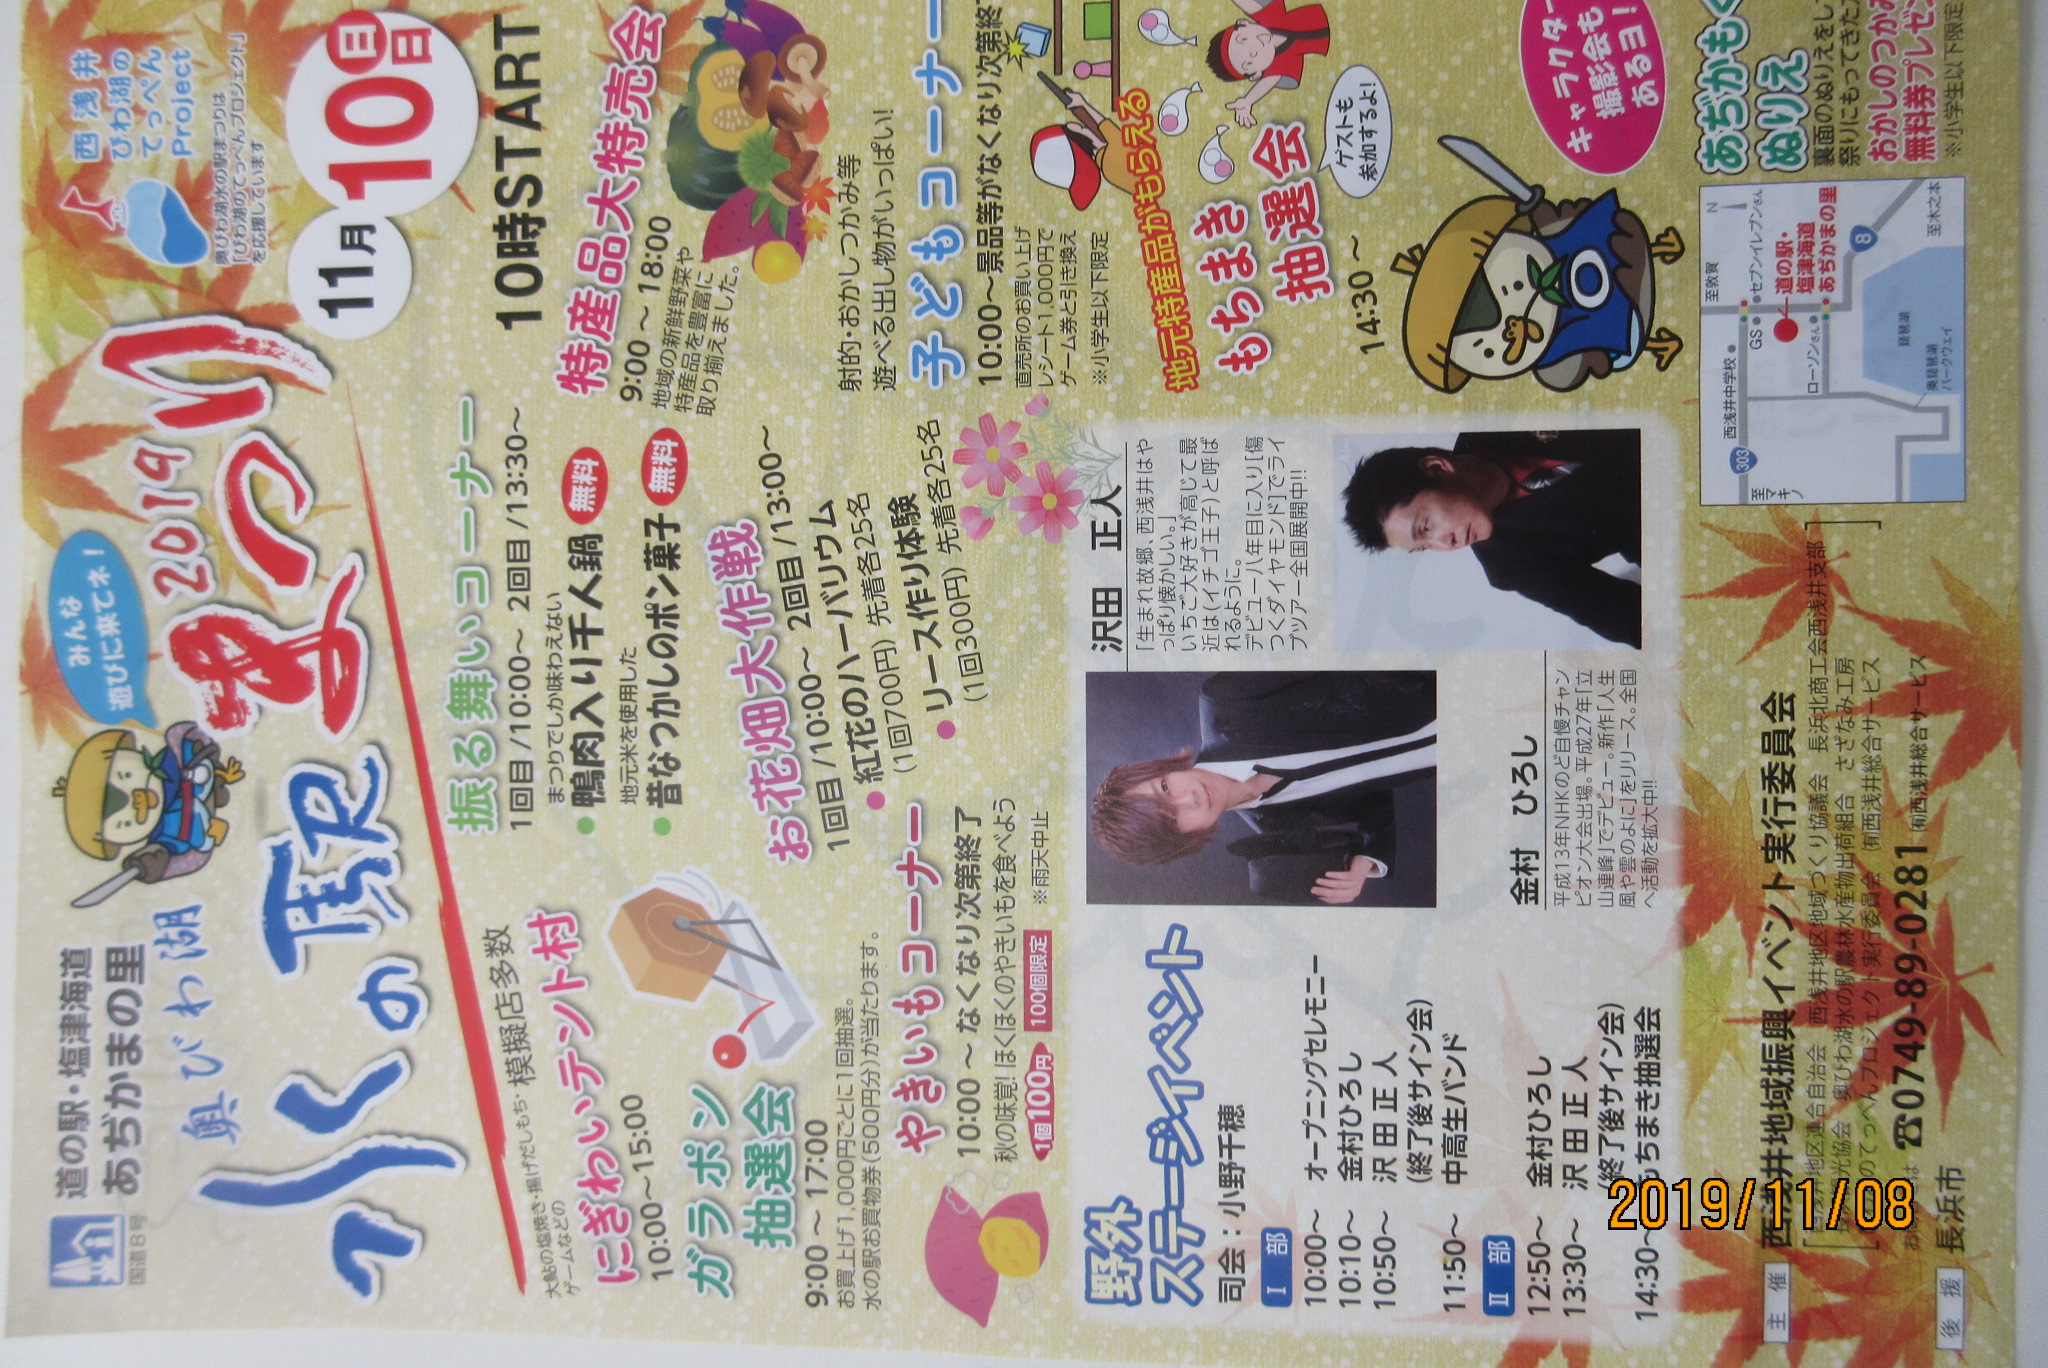 道の駅・塩津海道
あぢかまの里
国道8号
みんな
遊びに来てネ!
西浅井
びわ湖の
てっぺん
Project
奥びわ湖水の駅まつりは
「びわ湖のてっぺんプロジェクト」
を応援しています
奥びわ湖
水の駅
2019
まつり
11月
10日
日
10時START
大鮎の塩焼き・揚げだしもち・模擬店多数
ゲームなどの
にぎわいテント村
10:00〜15:00
ガラポン
抽選会
9:00 〜 17:00
お買上げ1,000円ごとに1回抽選。
水の駅お買物券(500円分)が当たります。
やきいもコーナー
10:00 〜 なくなり次第終了
秋の味覚!ほくほくのやきいもを食べよう
1個100円
100個限定
※雨天中止
振る舞いコーナー
1回目 /10:00〜 2回目 /13:30〜
まつりでしか味わえない
●鴨肉入り千人鍋
無料
地元米を使用した
●昔なつかしのポン菓子
無料
お花畑大作戦
1回目 /10:00〜 2回目 /13:00〜
●紅花のハーバリウム
(1回700円) 先着各25名
●リース作り体験
(1回300円) 先着各25名
特産品大特売会
9:00 〜 18:00
地域の新鮮野菜や
特産品を豊富に
取り揃えました。
射的・おかしつかみ等
遊べる出し物がいっぱい!
子どもコーナー
10:00〜景品等がなくなり次第終
直売所のお買い上げ
レシート1,000円で
ゲーム券と引き換え
※小学生以下限定
地元特産品がもらえる
もちまき
抽選会
14:30 〜
ゲストも
参加するよ!
キャラクター
撮影会も
あるヨ!
野外
ステージイベント
司会:小野千穂
Ⅰ 部
10:00〜 オープニングセレモニー
10:10〜 金村ひろし
10:50〜 沢田正人
(終了後サイン会)
11:50〜 中高生バンド
Ⅱ 部
12:50〜 金村ひろし
13:30〜 沢田正人
(終了後サイン会)
14:30〜もちまき抽選会
金村 ひろし
平成13年NHKのど自慢チャン
ピオン大会出場。平成27年「立
山連峰」でデビュー。新作「人生
風や雲のよに」をリリース。全国
へ活動を拡大中!!
沢田 正人
「生まれ故郷、西浅井はや
っぱり懐かしい。」
いちご大好きが高じて最
近は(イチゴ王子)と呼ば
れるように。
デビュー八年目に入り[傷
つくダイヤモンド]でライ
ブツアー全国展開中!!
あぢかまも
ぬりえ
裏面のぬりえをし
祭りにもってきた
おかしのつかみ
無料券プレゼン
※小学生以下限定
N
至敦賀
セブンイレブンさん
GS
西浅井中学校
道の駅・
塩津海道
あぢかまの里
ローソンさん
303
8
至マキノ
至木之本
琵琶湖
奥琵琶湖
パークウェイ
主 催
西浅井地域振興イベント実行委員会
地区連合自治会 西浅井地区地域づくり協議会 長浜北商工会西浅井支部
光協会 奥びわ湖水の駅農林水産物出荷組合 さざなみ工房
のてっぺんプロジェクト実行委員会 (有)西浅井総合サービス
は ☎0749-89-0281 (有)西浅井総合サービス
後 援
長浜市
2019/11/08